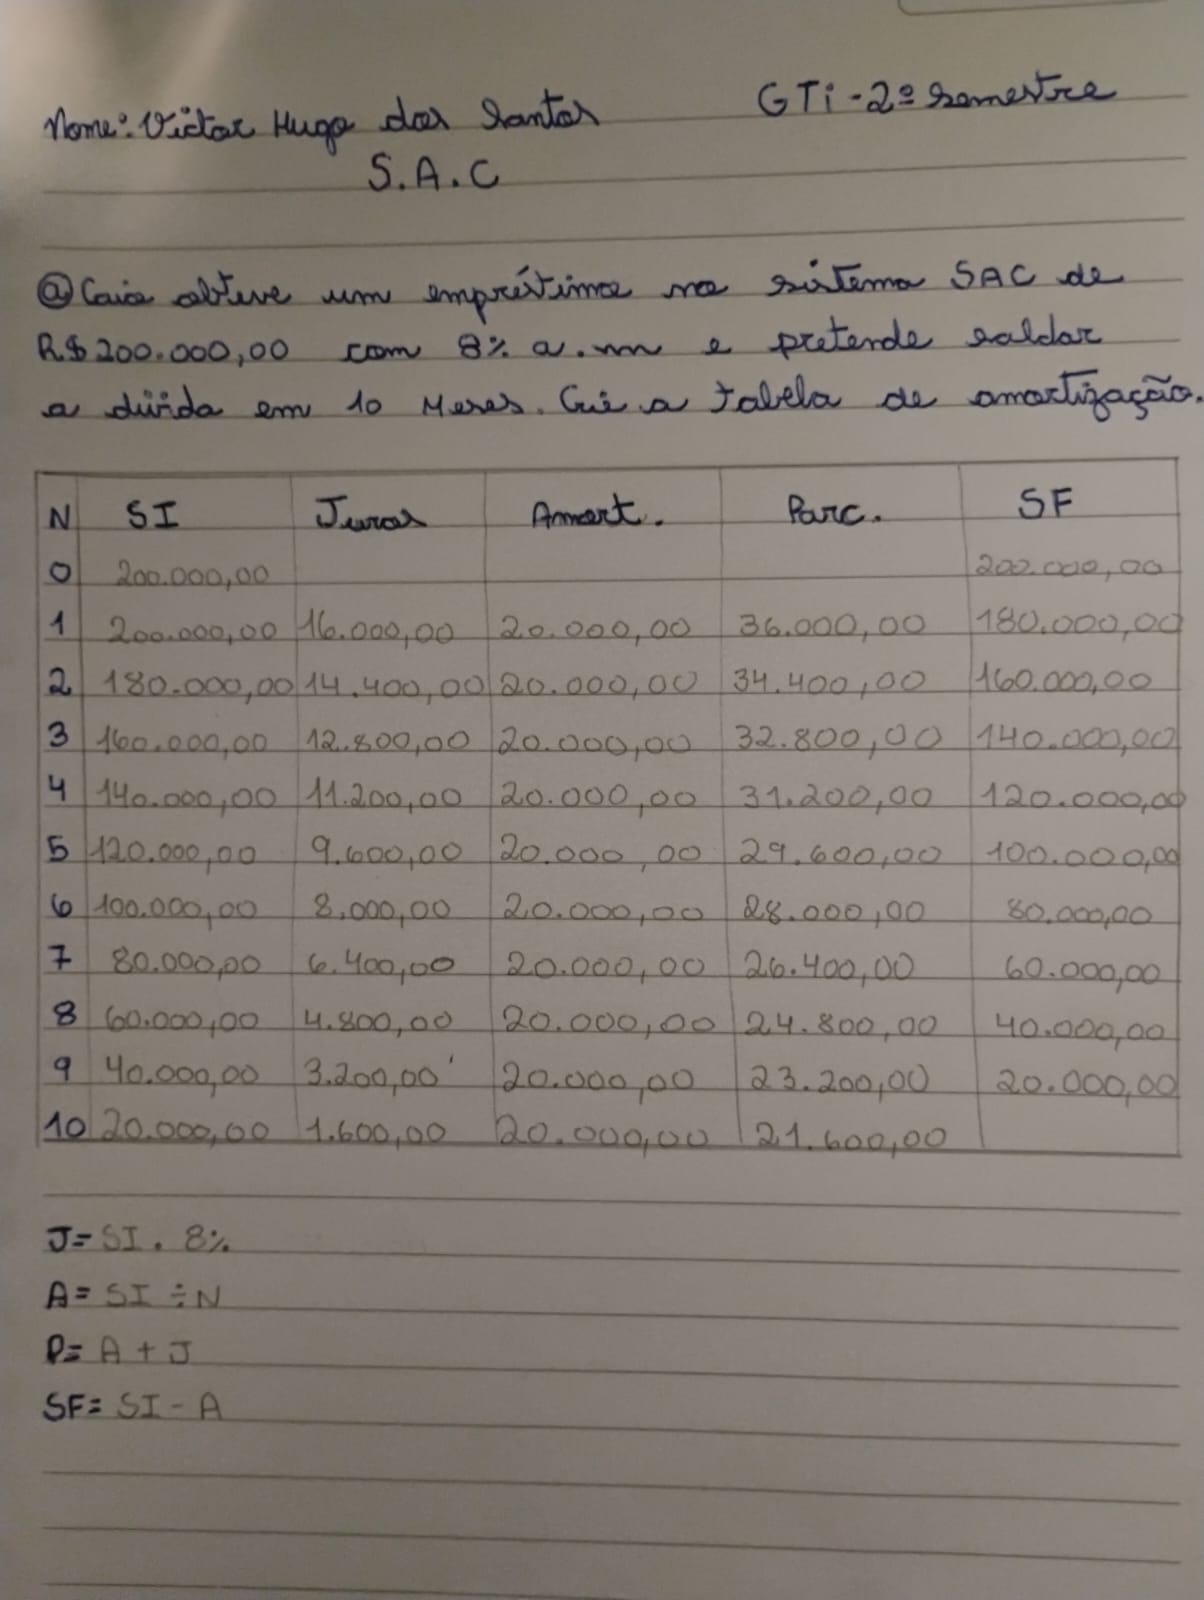 Nome: Victor Hugo dos Santos GTi - 2º semestre
S.A.C
@ Caio obteve um empréstimo no sistema SAC de
R$ 200.000,00 com 8% a.m e pretende saldar
a dívida em 10 Meses. Crie a tabela de amortização.
N SI Juros Amort. Parc. SF
0 200.000,00 200.000,00
1 200.000,00 16.000,00 20.000,00 36.000,00 180.000,00
2 180.000,00 14.400,00 20.000,00 34.400,00 160.000,00
3 160.000,00 12.800,00 20.000,00 32.800,00 140.000,00
4 140.000,00 11.200,00 20.000,00 31.200,00 120.000,00
5 120.000,00 9.600,00 20.000,00 29.600,00 100.000,00
6 100.000,00 8.000,00 20.000,00 28.000,00 80.000,00
7 80.000,00 6.400,00 20.000,00 26.400,00 60.000,00
8 60.000,00 4.800,00 20.000,00 24.800,00 40.000,00
9 40.000,00 3.200,00 20.000,00 23.200,00 20.000,00
10 20.000,00 1.600,00 20.000,00 21.600,00
J= SI . 8%
A= SI ÷ N
P= A + J
SF= SI - A